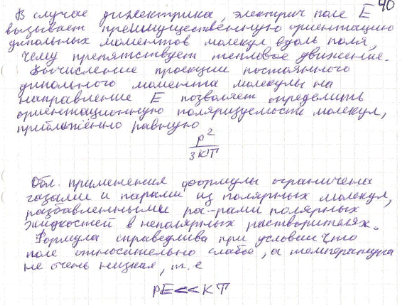 40
В случае диэлектрика, электрич поле E
вызывает преимущественную ориентацию
дипольных моментов молекул вдоль поля,
чему препятствует тепловое движение.
Вычисление проекции постоянного
дипольного момента молекулы на
направление E позволяет определить
ориентационную поляризуемость молекул,
приближённо равную
p²
3KT
Обл. применения формулы ограничена
газами и парами из полярных молекул,
разбавленными рас-рами полярных
жидкостей в неполярных растворителях.
Формула справедлива при условии что
поле относительно слабое, а температура
не очень низкая, т.е
pE<<KT